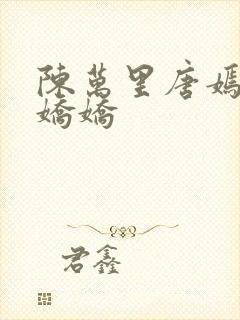 陳萬里唐嫣
嬌嬌
君鑫